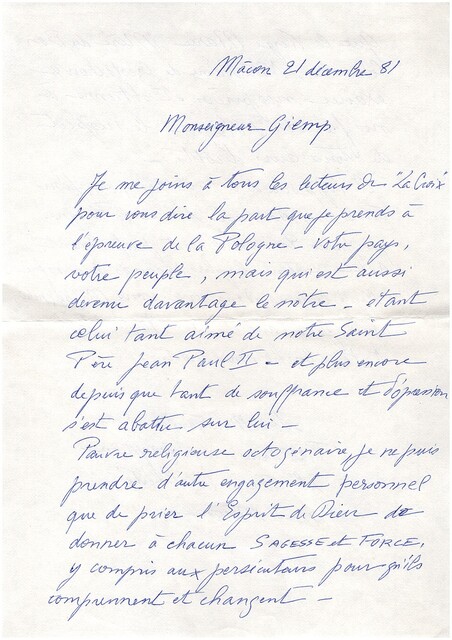 Mâcon 21 décembre 81
Monseigneur Glemp
Je me joins à tous les lecteurs de "La Croix"
pour vous dire la part que je prends à
l'épreuve de la Pologne - votre pays,
votre peuple, mais qui est aussi
devenu davantage le nôtre - étant
celui tant aimé de notre Saint
Père Jean Paul II - et plus encore
depuis que tant de souffrance et d'opression
s'est abattu sur lui -
Pauvre religieuse octogénaire, je ne puis
prendre d'autre engagement personnel
que de prier l'Esprit de Dieu de
donner à chacun SAGESSE et FORCE,
y compris aux persécuteurs pour qu'ils
comprennent et changent -